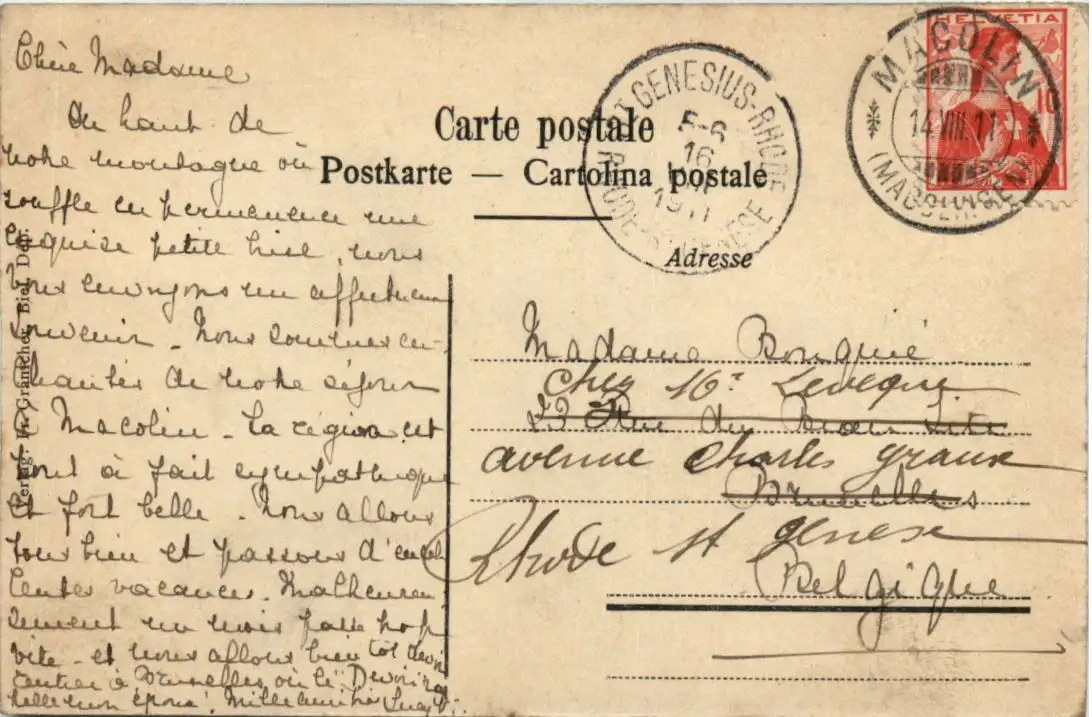 Chère Madame
Du haut de
notre montagne où
souffle en permanence une
exquise petite bise, nous
vous envoyons un affectueux
souvenir. Nous sommes en-
chantés de notre séjour
à Macolin. La région est
tout à fait sympathique
et fort belle. Nous allons
tous bien et passons d'excel-
lentes vacances. Malheureu-
sement un mois passe trop
vite et nous allons bientôt devoir
rentrer à Bruxelles où le Devoir rap-
pelle mon époux. Mille amitiés Lucy
Verlag: Fr. Gränicher, Biel. Dép.
Carte postale
Postkarte — Cartolina postale
Adresse
Madame Bouquié
chez Mr Leveque
23 Rue du Beau Site
avenue Charles Graux
Bruxelles
Rhode St Genese
Belgique
ST GENESIUS-RHODE
5-6
16
1911
RHODE-ST-GENESE
HELVETIA
10
MACOLIN
14.VIII.11
(MAGGLINGEN)